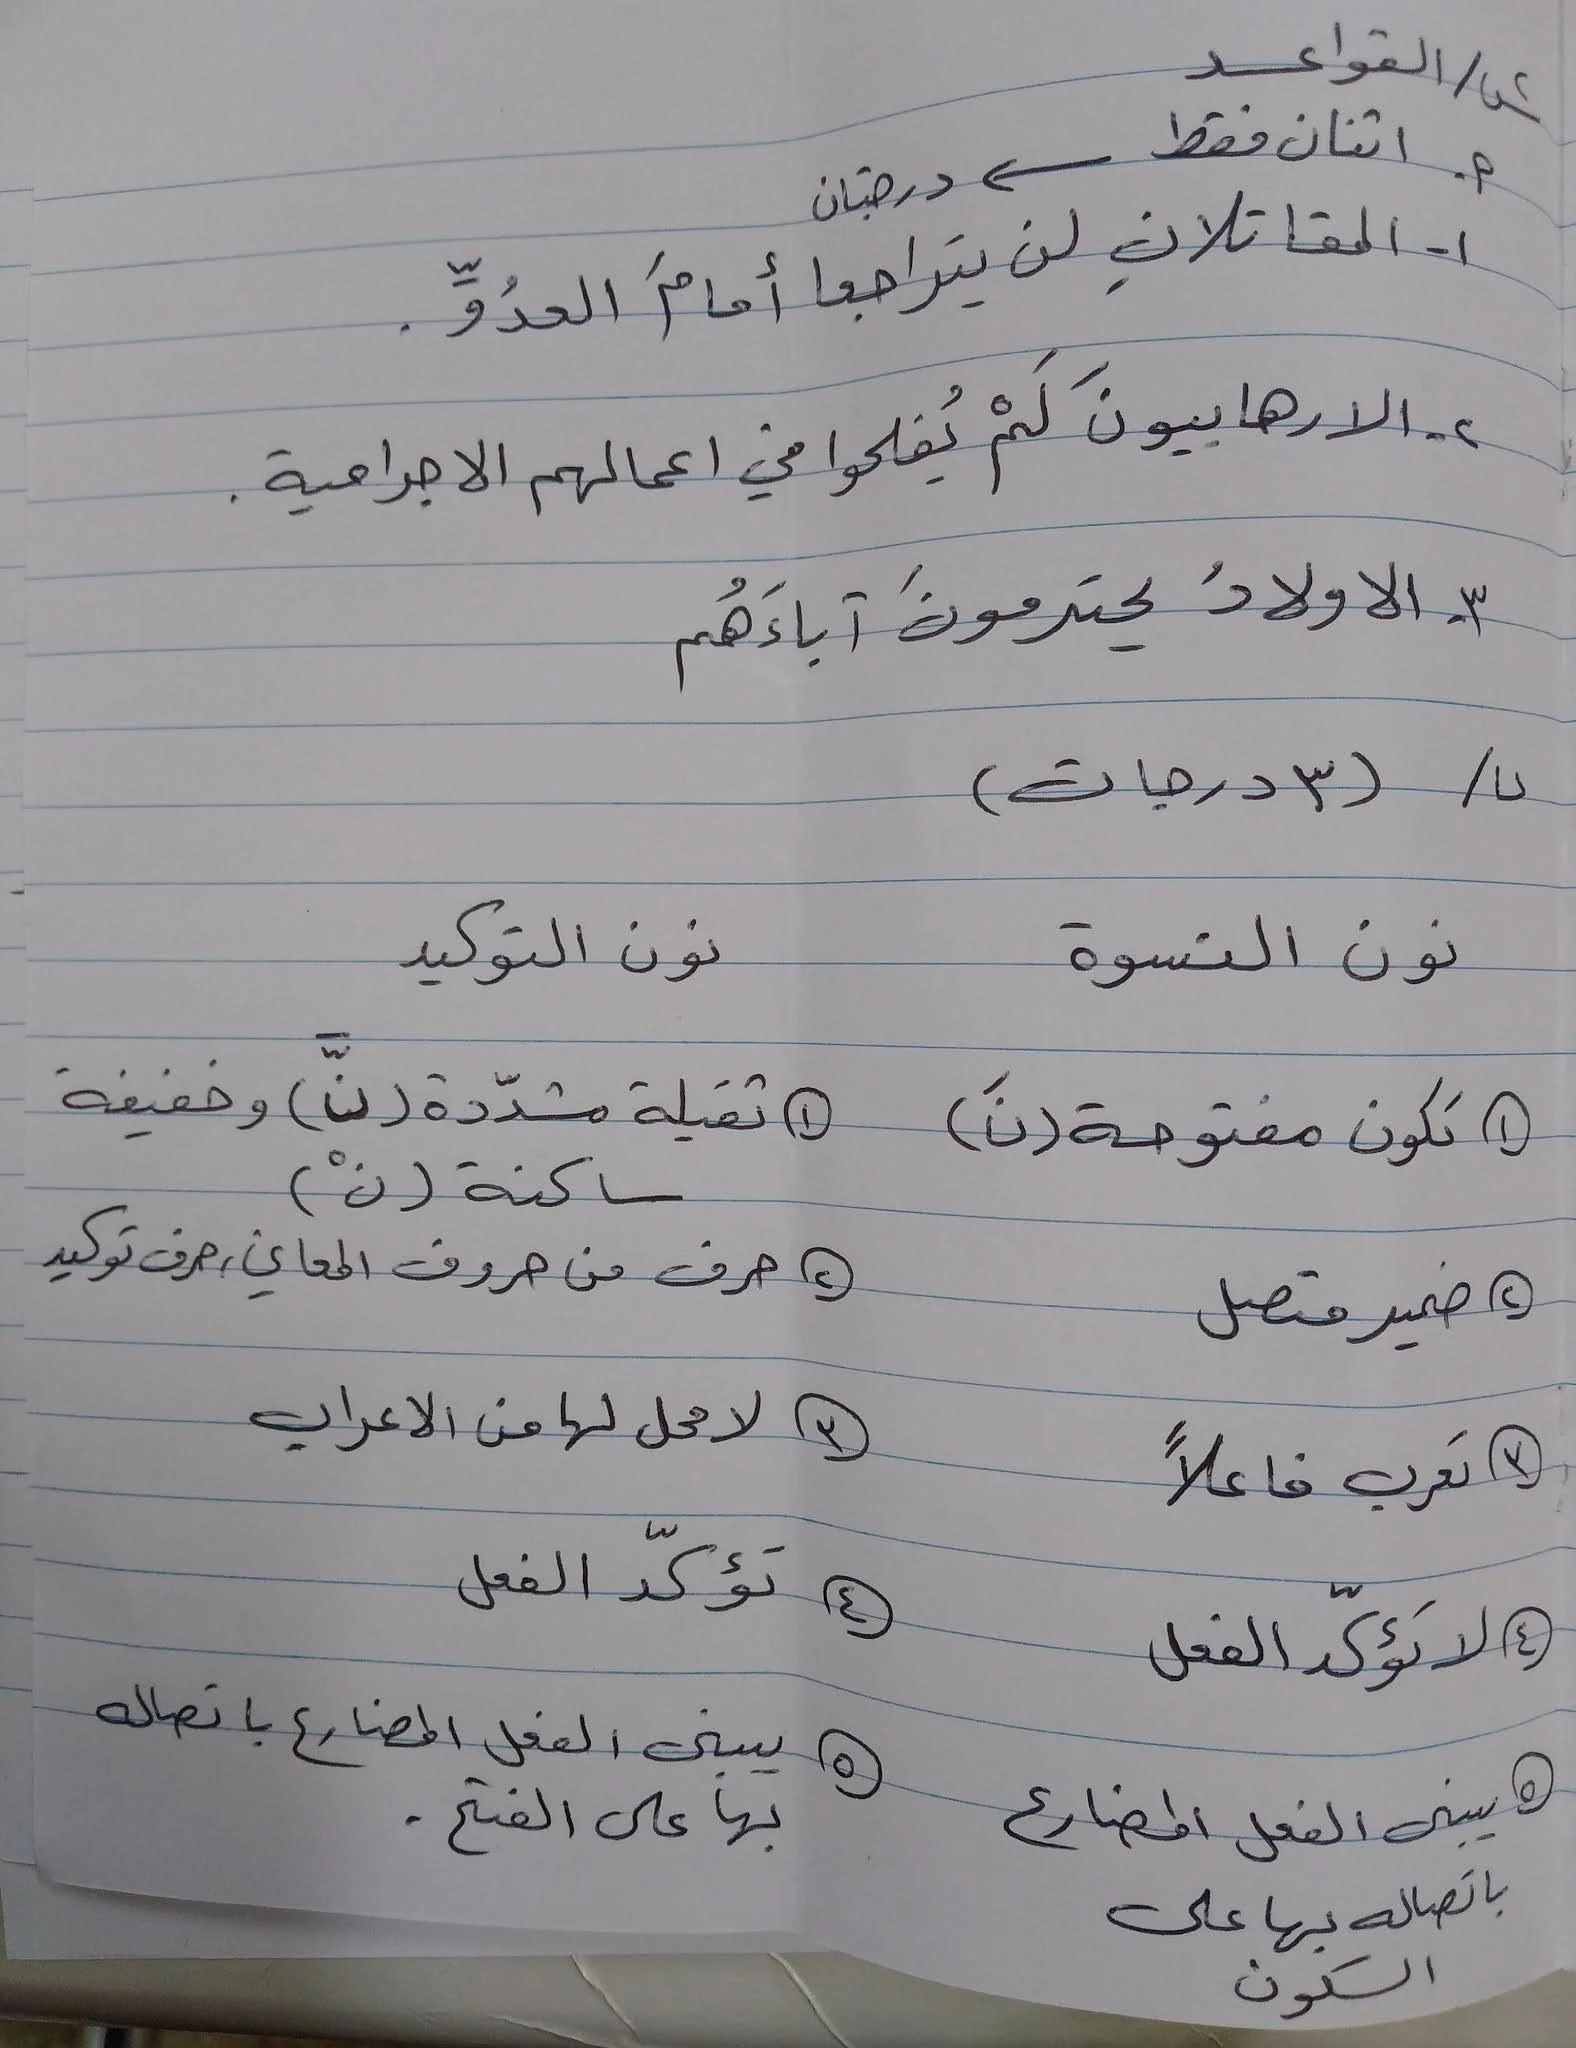 س٢/ القواعد
م. اثنان فقط ← درجتان
١- المقاتلانِ لن يتراجعا أمامَ العدُوِّ.
٢- الارهابيونَ لَمْ يُفلحوا في اعمالهم الاجرامية.
٣- الاولادُ يحترمونَ آباءَهُم
ب/ (٣ درجات)
نون النسوة
نون التوكيد
① تكون مفتوحة (نَ)
① ثقيلة مشدّدة (نَّ) وخفيفة
ساكنة (نْ)
② ضمير متصل
② حرف من حروف المعاني، حرف توكيد
③ تعرب فاعلاً
③ لا محل لها من الاعراب
④ لا تؤكّد الفعل
④ تؤكّد الفعل
⑤ يبنى الفعل المضارع
باتصاله بها على
السكون
⑤ يبنى الفعل المضارع باتصاله
بها على الفتح.